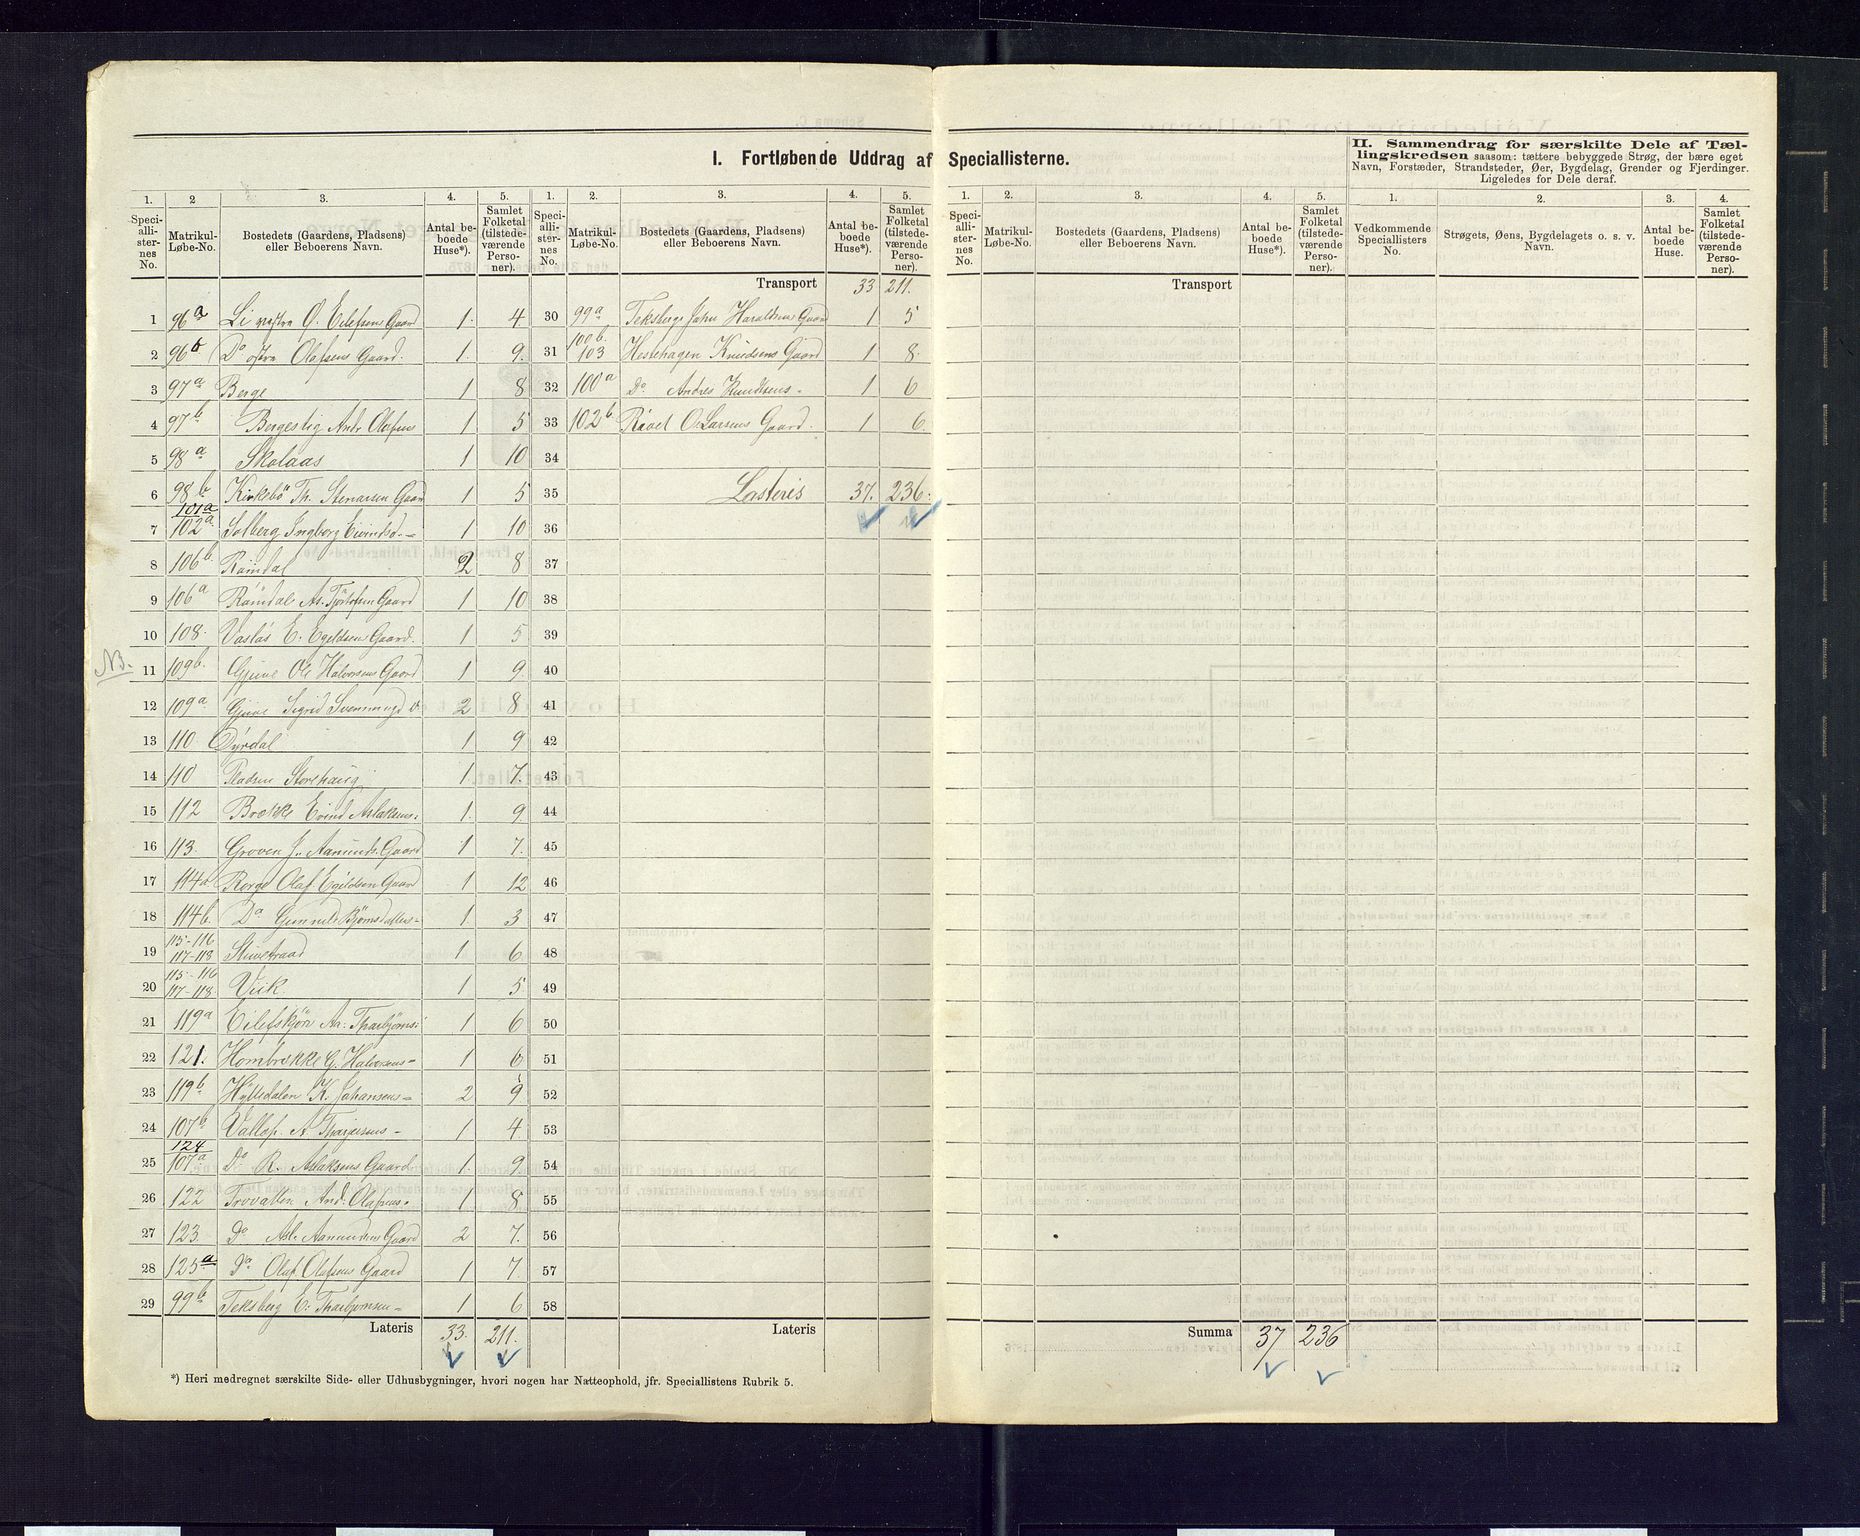 I. Fortløbende Uddrag af Speciallisterne.
II. Sammendrag for særskilte Dele af Tæl-
lingskredsen saasom: tættere bebyggede Strøg, der bære eget
Navn, Forstæder, Strandsteder, Øer, Bygdelag, Grender og Fjerdinger.
Ligeledes for Dele deraf.
1. 2 3. 4. 5. 1. 2. 3. 4. 5. 1. 2. 3. 4. 5. 1. 2. 3. 4.
Speciallisternes No. Matrikul-Løbe-No. Bostedets (Gaardens, Pladsens) eller Beboerens Navn. Antal beboede Huse*). Samlet Folketal (tilstedeværende Personer).
Speciallisternes No. Matrikul-Løbe-No. Bostedets (Gaardens, Pladsens) eller Beboerens Navn. Antal beboede Huse*). Samlet Folketal (tilstedeværende Personer).
Speciallisternes No. Matrikul-Løbe-No. Bostedets (Gaardens, Pladsens) eller Beboerens Navn. Antal beboede Huse*). Samlet Folketal (tilstedeværende Personer).
Vedkommende Speciallisters No. Strøgets, Øens, Bygdelagets o. s. v. Navn. Antal beboede Huse. Samlet Folketal (tilstedeværende Personer).
Transport 33 211. Transport
1 96a Li vestra O. Eilefsens Gaard 1. 4. 30 99a Teksberge John Haraldsens Gaard 1 5
2 96b Do østra Olafsens Gaard. 1. 9. 31 100b. 103 Hestehagen Knudsens Gaard 1 8.
3 97a Berge 1 8 32 100a Do Andres Knudtsens - 1 6
4 97b Bergestig Andr Olafsens 1 5 33 102b. O. Larsens Gaard. 1 6.
5 98a Skolaas 1 10 34
6 98b Kirkebö Th. Stenarsen Gaard 1 5 35 Lateris 37. 236.
7 101a 102a Solberg Ingborg Eivindsd. - 1 10 36
8 106b. Ramdal 2 8 37
9 106a Ramdal As. Gaard 1 10 38
10 108. Vaslös E. Egeldsens Gaard. 1 5 39
NB. 11 109b. Gjuve Ole Halvorsens Gaard 1 9. 40
12 109a Gjuve Sigrid 2 8 41
13 110 Dyrdal 1 9 42
14 110 Pladsen Storehaug 1 7. 43
15 112 Brokke Eivind Aslaksens. 1. 9. 44
16 113. Groven J. Aamunds. Gaard 1 7. 45
17 114a Berge Olaf Egildsen Gaard 1 12 46
18 114b. Do Gunnild Bjørnsdatters - 1. 3 47
19 115-116 117-118 1 6 48
20 115-116 117-118. Vik. 1 5 49
21 119a Eilefskjön Aa. Thorbjørns. 1 6 50
22 121. Hombrokke G. Halvorsens - 1 6 51
23 119b Hyllsdalen K. Johansens - 2 9 52
24 107b Valle A - 1 4 53
25 124 107a Do R. Aslaksens Gaard 1. 9 54
26 122 Trovatten And. Olafsens - 1 8. 55
27 123. Do Asl. Aamundsens Gaard 2 7. 56
28 125a Do Olaf Olafsens Gaard 1 7 57
29 99b Teksberg E. Thorbjørnsen - 1 6 58
Lateris 33. 211. Lateris Summa 37 236
*) Heri medregnet særskilte Side- eller Udhusbygninger, hvori nogen har Natteophold, jfr. Speciallistens Rubrik 5.